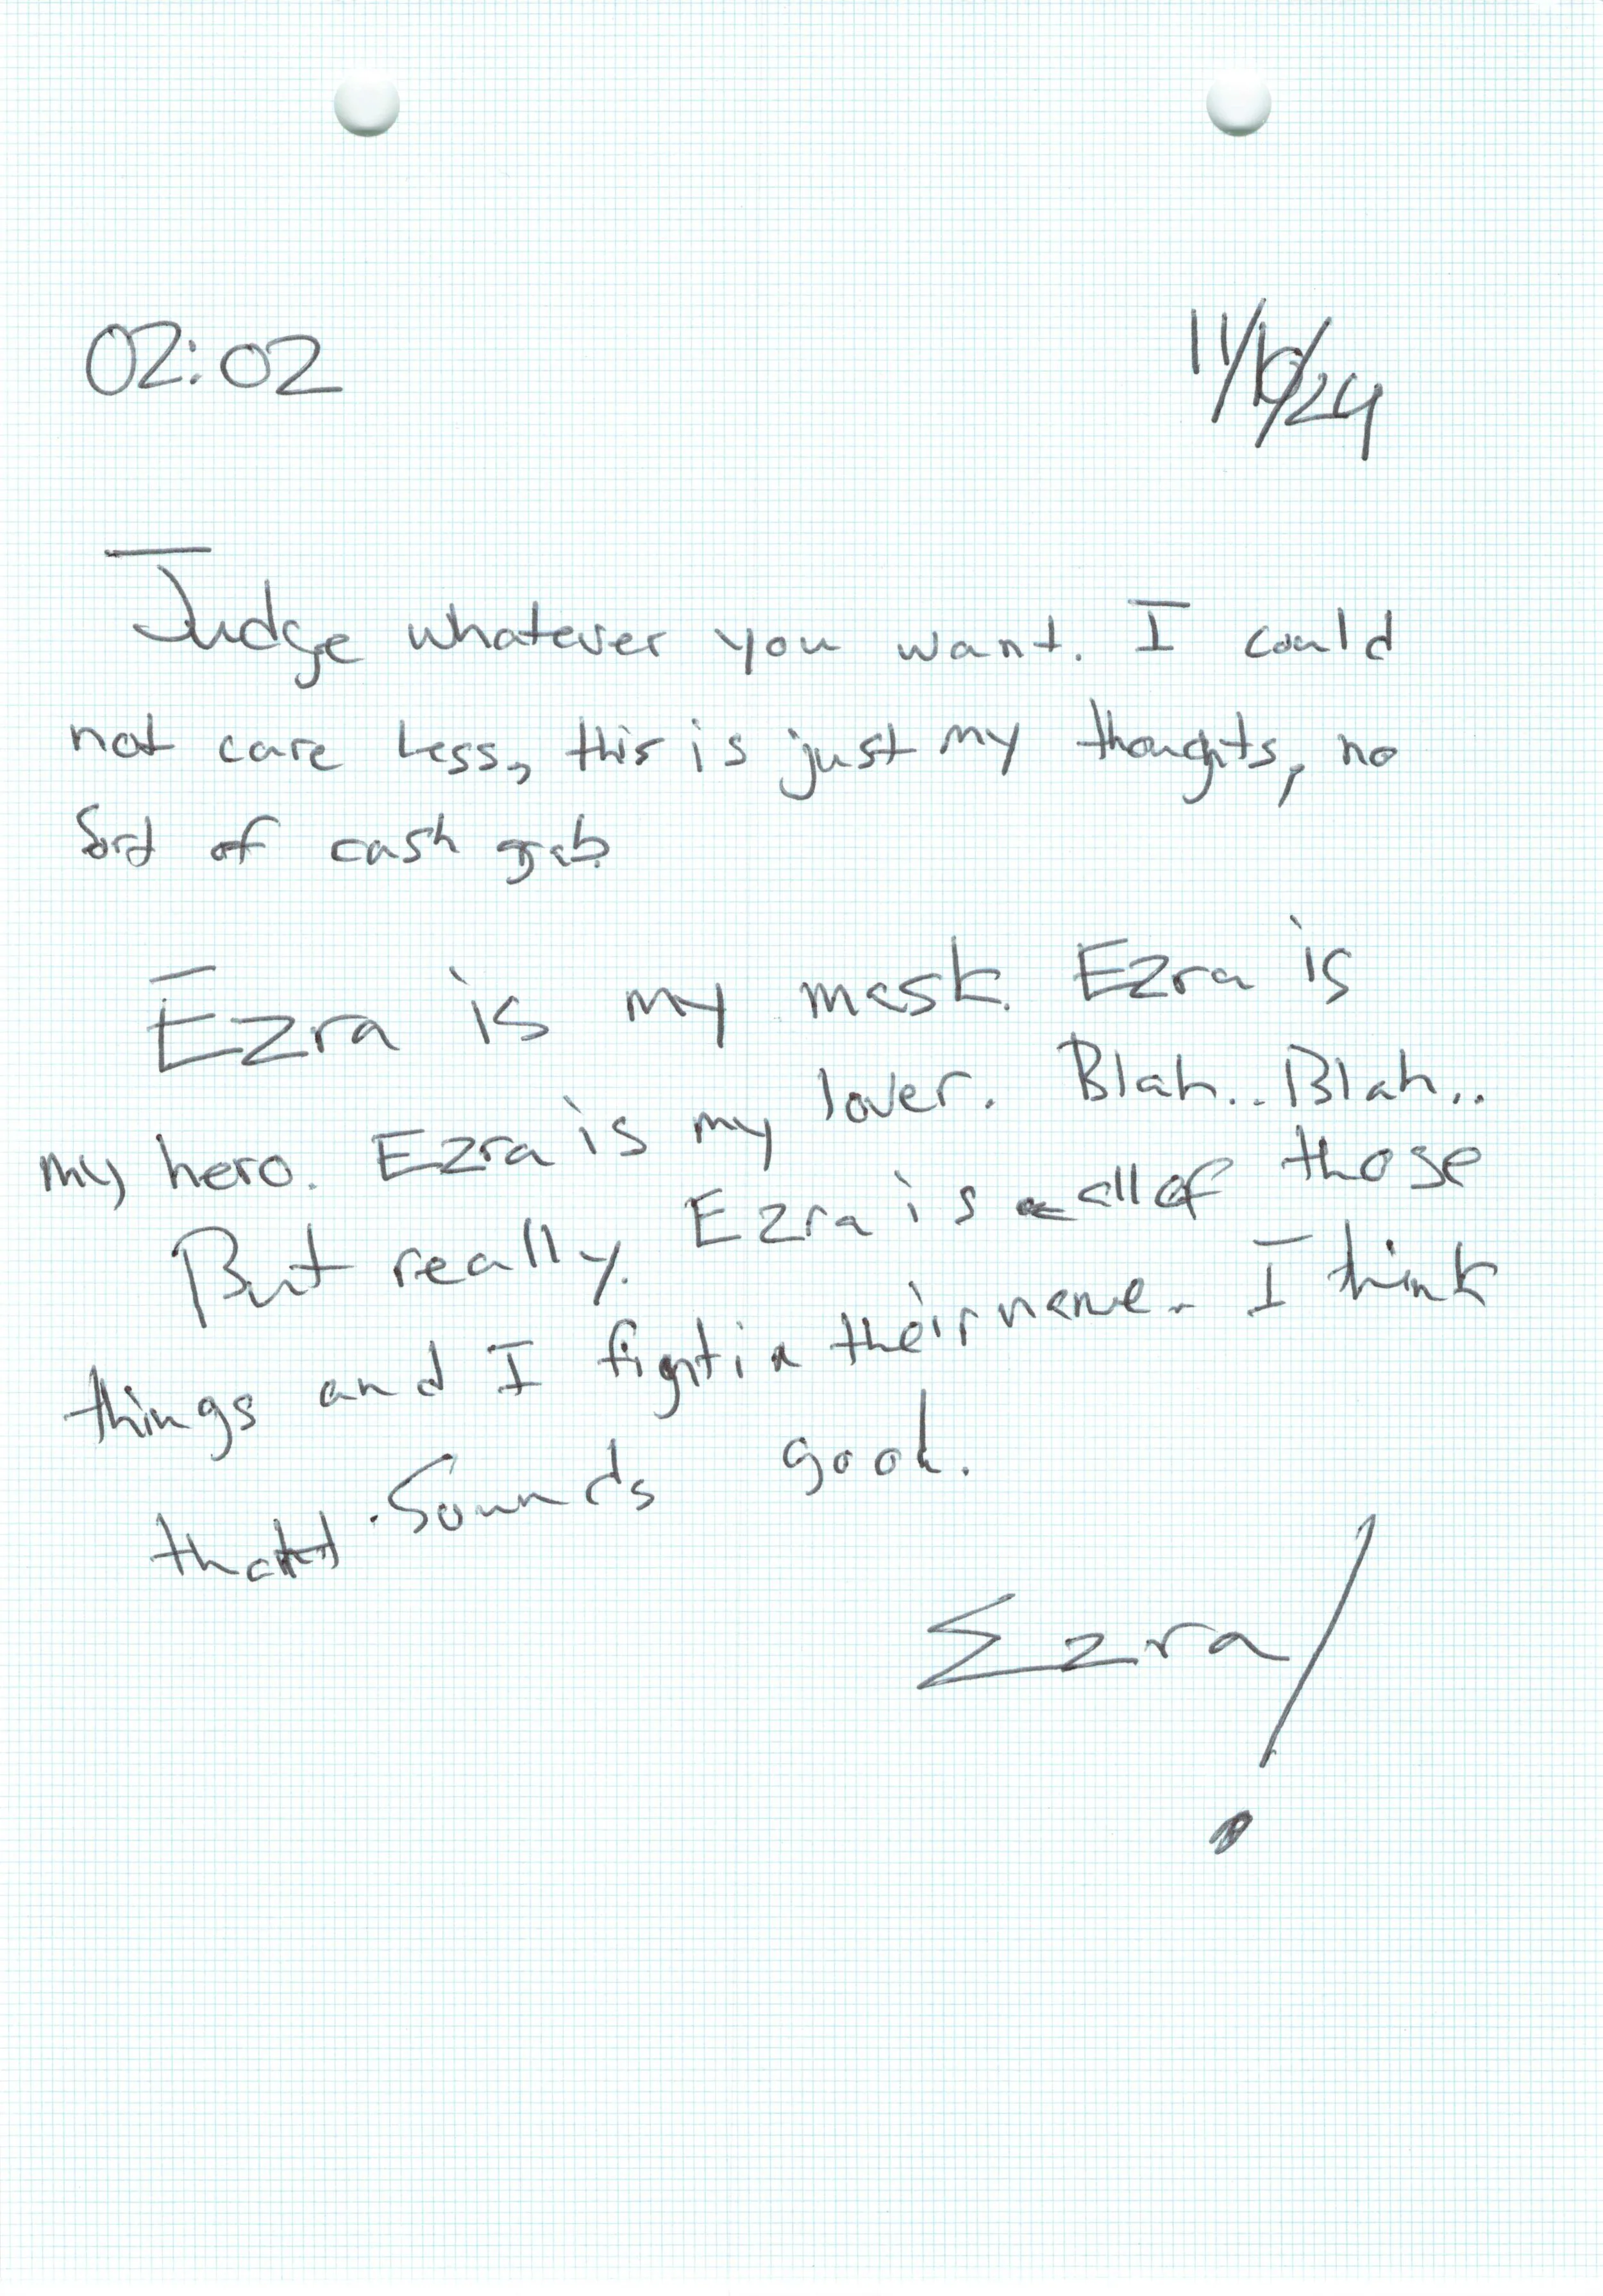 02:02
11/10/24
Judge whatever you want. I could
not care less, this is just my thoughts, no
sort of cash grab.
Ezra is my mask. Ezra is
my hero. Ezra is my lover. Blah.. Blah..
But really. Ezra is all of those
things and I fight in their name. I think
that sounds good.
Ezra!